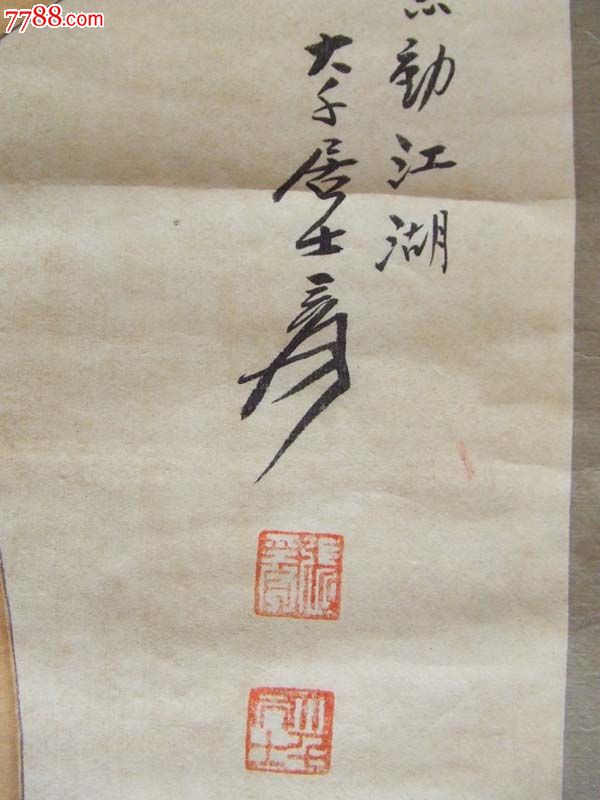 7788.com
動江湖
大千居士爰